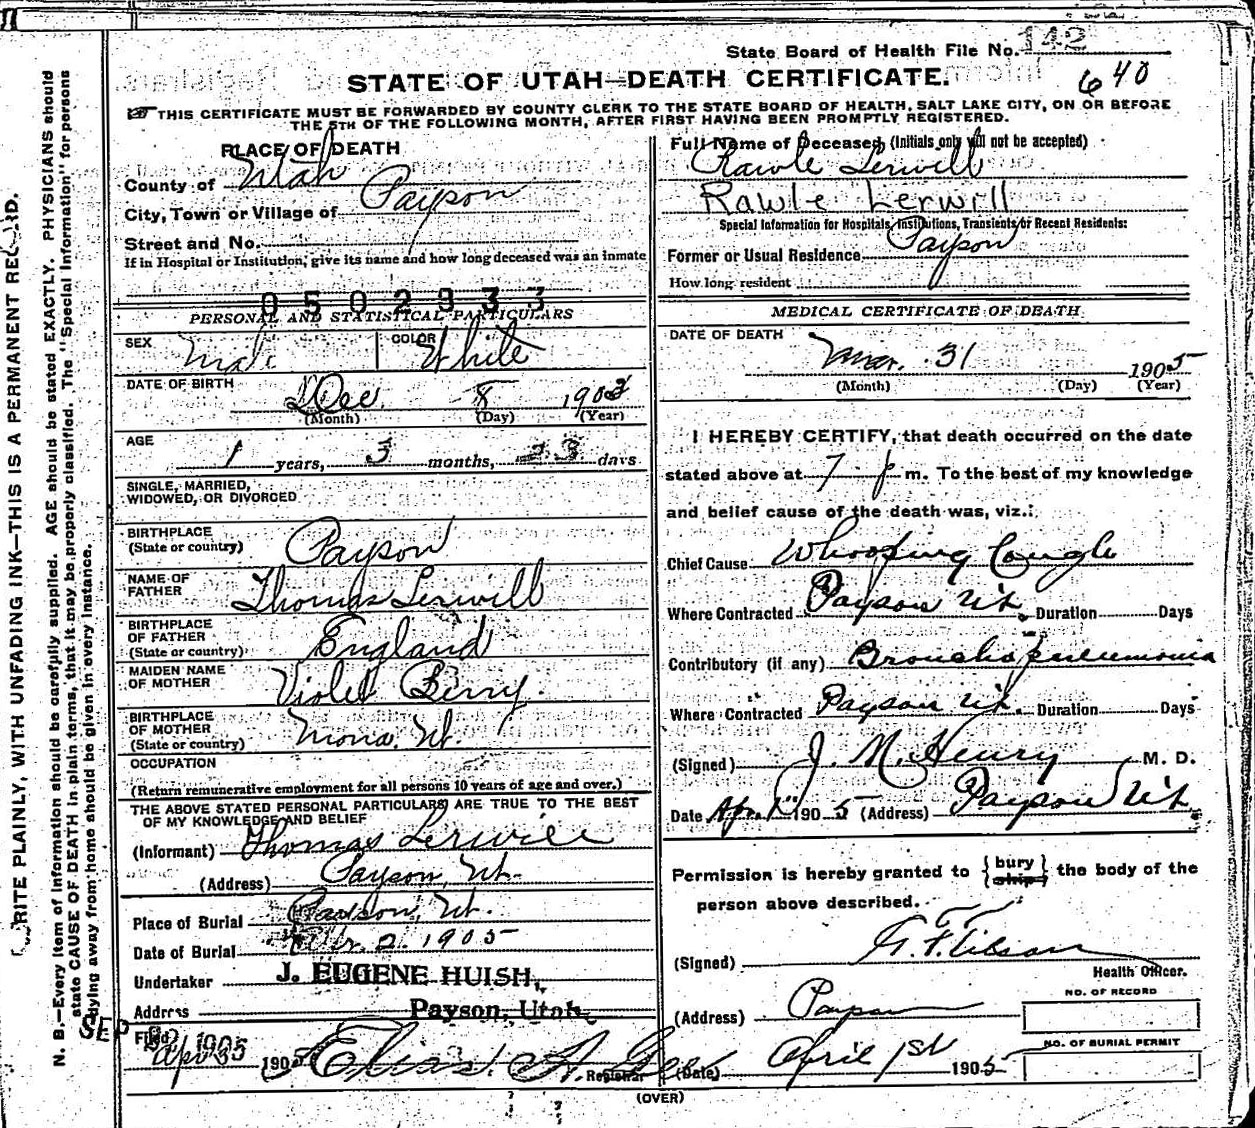 State Board of Health File No. 142
STATE OF UTAH—DEATH CERTIFICATE.
640
THIS CERTIFICATE MUST BE FORWARDED BY COUNTY CLERK TO THE STATE BOARD OF HEALTH, SALT LAKE CITY, ON OR BEFORE
THE 5TH OF THE FOLLOWING MONTH, AFTER FIRST HAVING BEEN PROMPTLY REGISTERED.
PLACE OF DEATH
County of Utah
City, Town or Village of Payson
Street and No.
If in Hospital or Institution, give its name and how long deceased was an inmate
050233
PERSONAL AND STATISTICAL PARTICULARS
SEX Male COLOR White
DATE OF BIRTH Dec 8 1903
(Month) (Day) (Year)
AGE
1 years, 3 months, 23 days
SINGLE, MARRIED,
WIDOWED, OR DIVORCED
BIRTHPLACE
(State or country) Payson
NAME OF
FATHER Thomas Lerwill
BIRTHPLACE
OF FATHER
(State or country) England
MAIDEN NAME
OF MOTHER Violet Berry.
BIRTHPLACE
OF MOTHER
(State or country) Mona, Ut.
OCCUPATION
(Return remunerative employment for all persons 10 years of age and over.)
THE ABOVE STATED PERSONAL PARTICULARS ARE TRUE TO THE BEST
OF MY KNOWLEDGE AND BELIEF
(Informant) Thomas Lerwill
(Address) Payson, Ut.
Place of Burial Payson, Ut.
Date of Burial 2. 1905
Undertaker J. EUGENE HUISH,
Address Payson, Utah
Filed Apr 1905 Registrar
(OVER)
Full Name of Deceased (Initials only will not be accepted)
Rawle Lerwill
Rawle Lerwill
Special Information for Hospitals, Institutions, Transients or Recent Residents:
Former or Usual Residence Payson
How long resident
MEDICAL CERTIFICATE OF DEATH
DATE OF DEATH
Mar. 31 1905
(Month) (Day) (Year)
I HEREBY CERTIFY, that death occurred on the date
stated above at 7 p m. To the best of my knowledge
and belief cause of the death was, viz.:
Chief Cause Whooping Cough
Where Contracted Payson Ut. Duration Days
Contributory (if any) Broncho pneumonia
Where Contracted Payson Ut. Duration Days
(Signed) J. M. Henry M. D.
Date Apr. 1st 1905 (Address) Payson Ut
Permission is hereby granted to {bury ship} the body of the
person above described.
(Signed) Health Officer.
(Address) Payson
NO. OF RECORD
NO. OF BURIAL PERMIT
(Date) April 1st 1905
WRITE PLAINLY, WITH UNFADING INK—THIS IS A PERMANENT RECORD.
N. B.—Every item of information should be carefully supplied. AGE should be stated EXACTLY. PHYSICIANS should
state CAUSE OF DEATH in plain terms, that it may be properly classified. The "Special Information" for persons
dying away from home should be given in every instance.